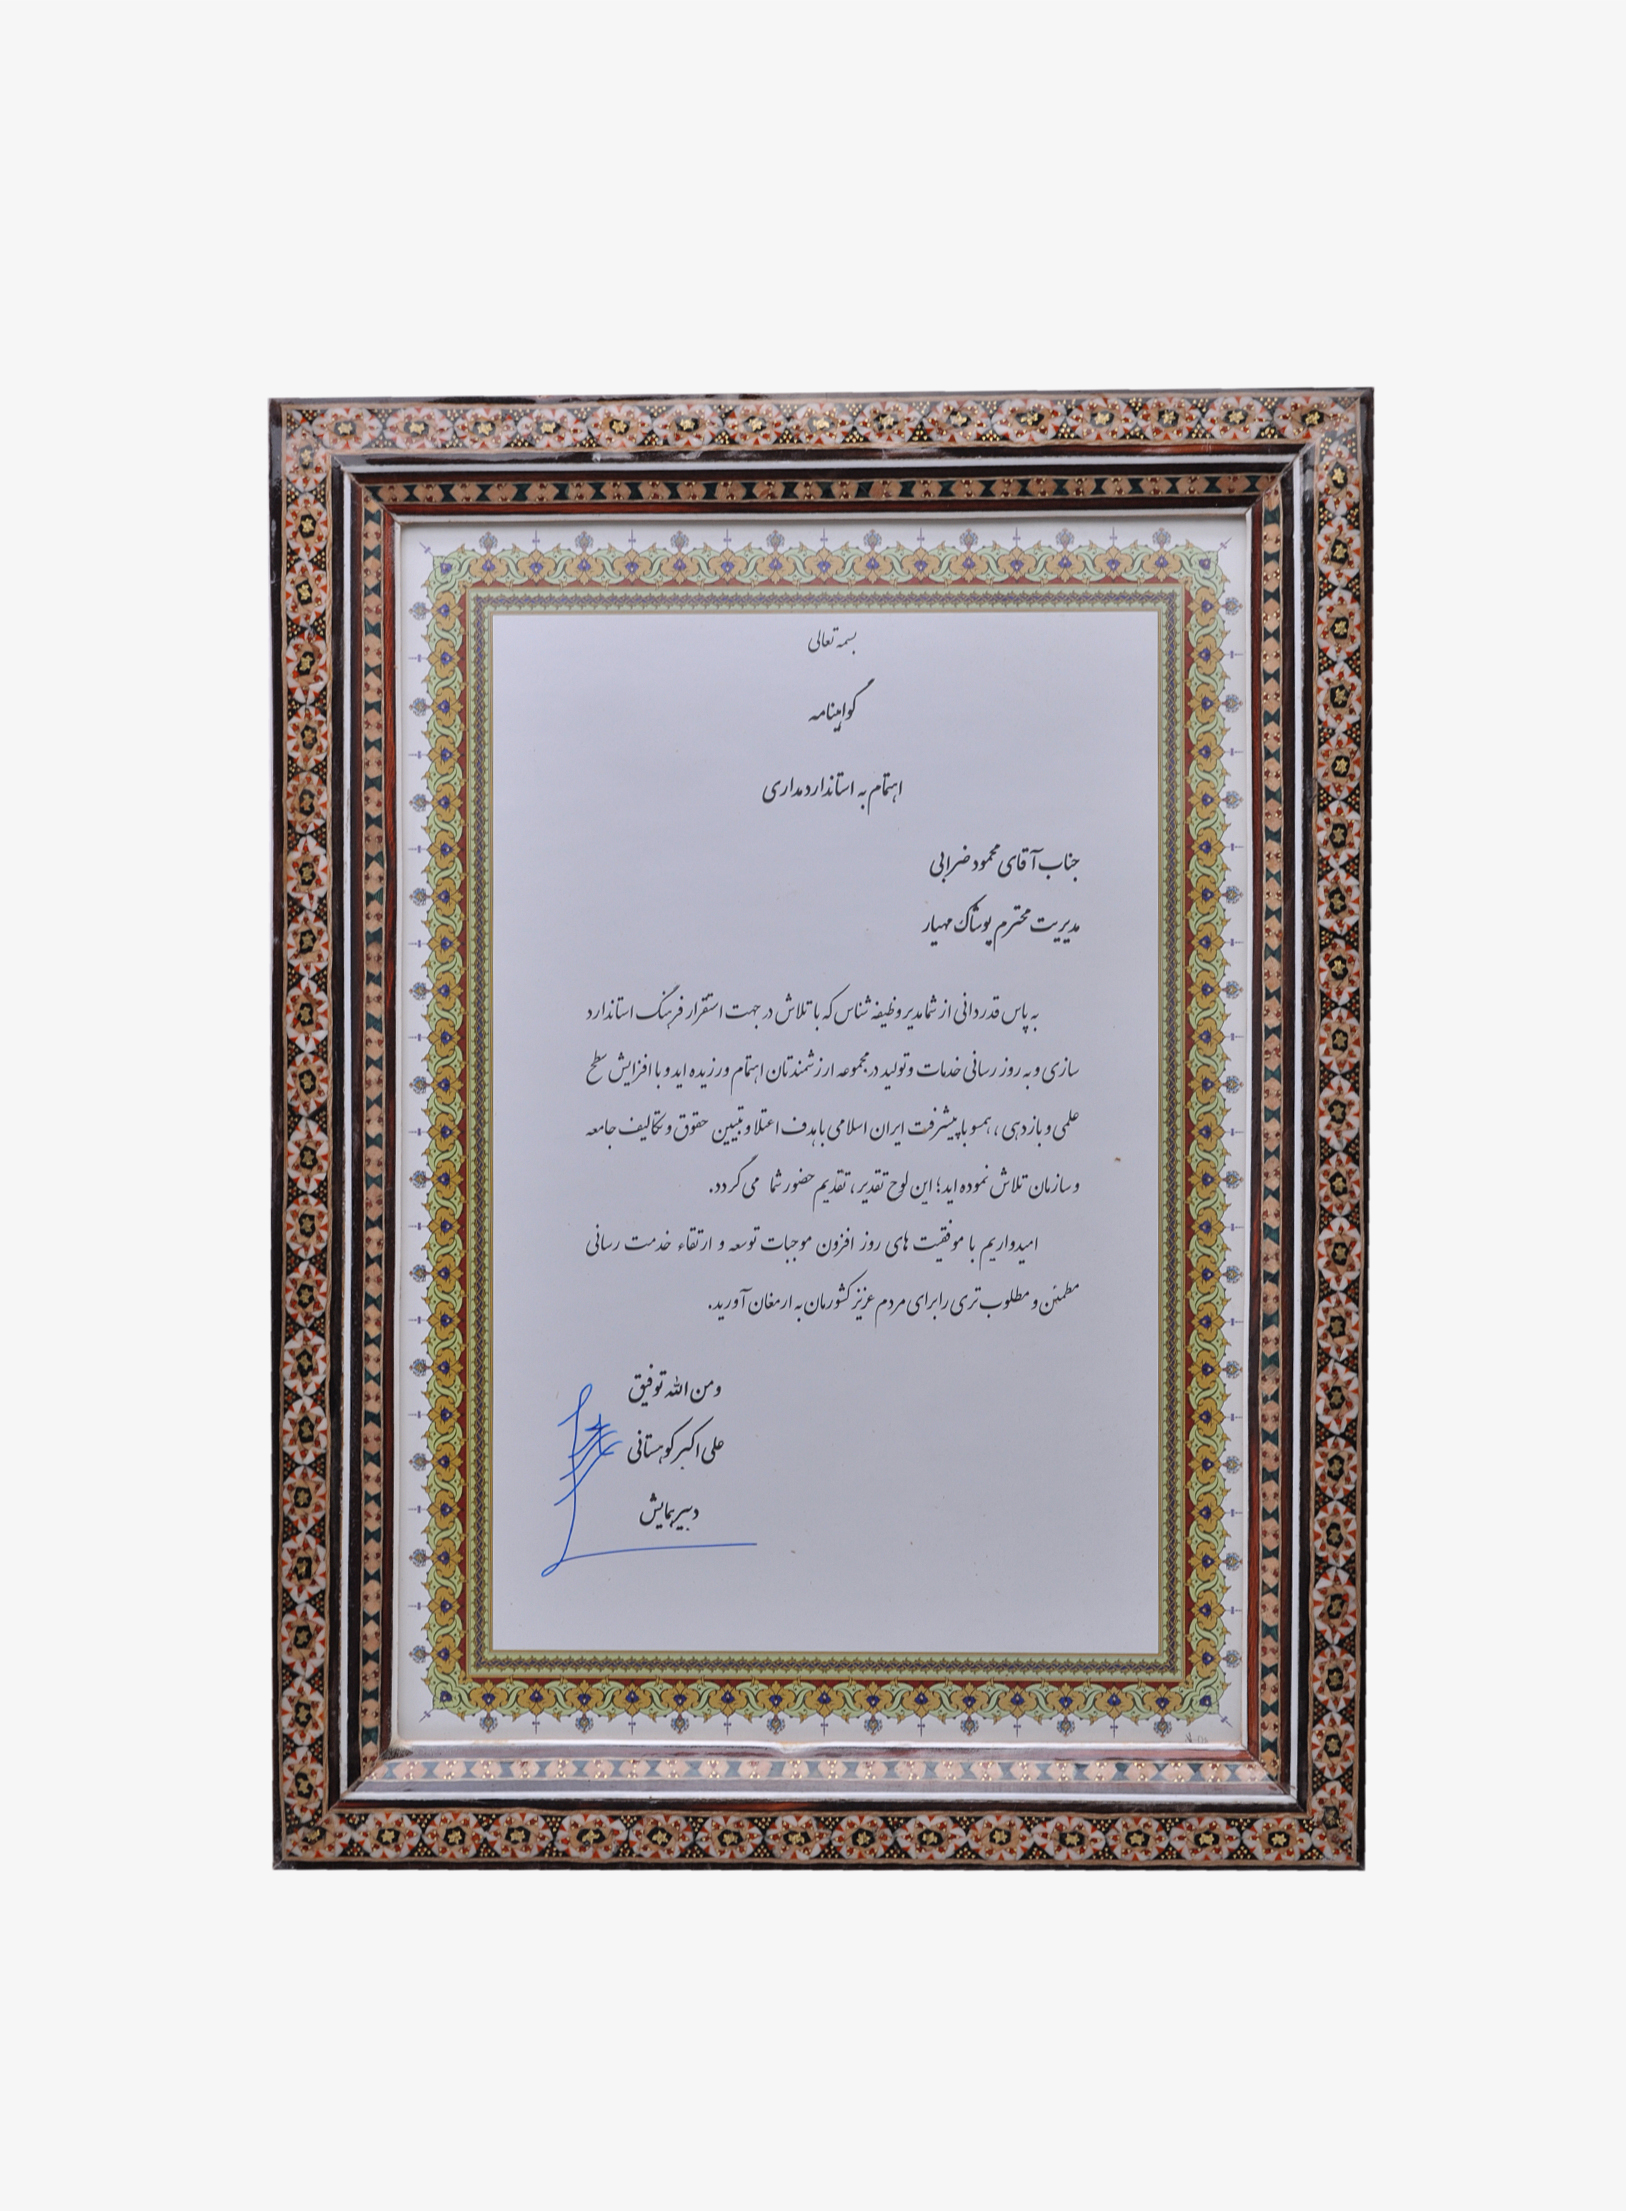 بسمه تعالی
گواهینامه
اهتمام به استانداردمداری
جناب آقای محمود ضرابی
مدیریت محترم پوشاک مهیار
به پاس قدردانی از شما مدیر وظیفه شناس که با تلاش در جهت استقرار فرهنگ استاندارد
سازی و به روز رسانی خدمات و تولید در مجموعه ارزشمندتان اهتمام ورزیده اید و با افزایش سطح
علمی و بازدهی ، همسو با پیشرفت ایران اسلامی با هدف اعتلا و تبیین حقوق و تکالیف جامعه
و سازمان تلاش نموده اید؛ این لوح تقدیر، تقدیم حضور شما می گردد.
امیدواریم با موفقیت های روز افزون موجبات توسعه و ارتقاء خدمت رسانی
مطمئن و مطلوب تری را برای مردم عزیز کشورمان به ارمغان آورید.
و من الله توفیق
علی اکبر کوهستانی
دبیر همایش